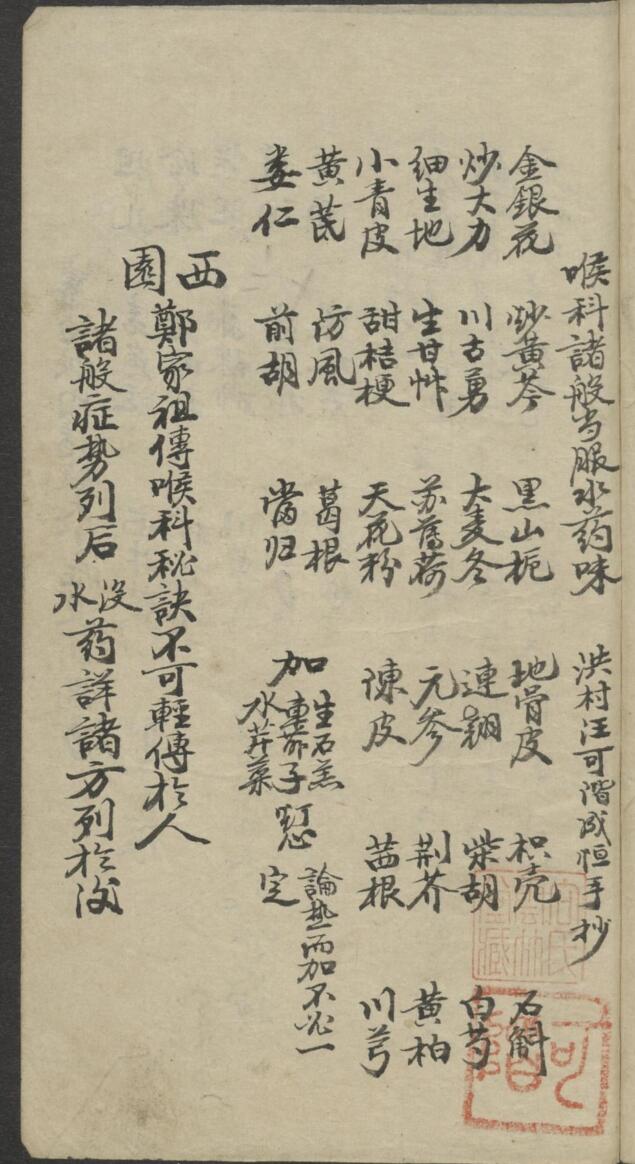 喉科諸般当服水药味 洪村汪可階成恒手抄
金銀花 炒黄芩 黑山栀 地骨皮 枳壳 石斛
炒大力 川古勇 大麦冬 連翘 柴胡 白芍
细生地 生甘艸 苏薄荷 元参 荆芥 黄柏
小青皮 甜桔梗 天花粉 陳皮 茜根 川芎
黄芪 防風 葛根
蒌仁 前胡 當归
加 生石羔
水荓菜
論热而加不必一定
西園 鄭家祖傳喉科秘訣不可輕傳於人
諸般症势列后 水没药詳諸方列於后